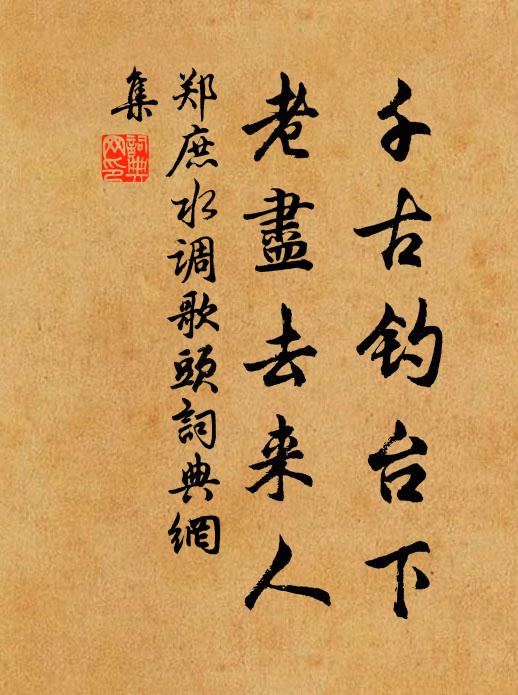 千古钓台下
老盡去来人
郑庶水调歌頭詞典網
集
詞典网印